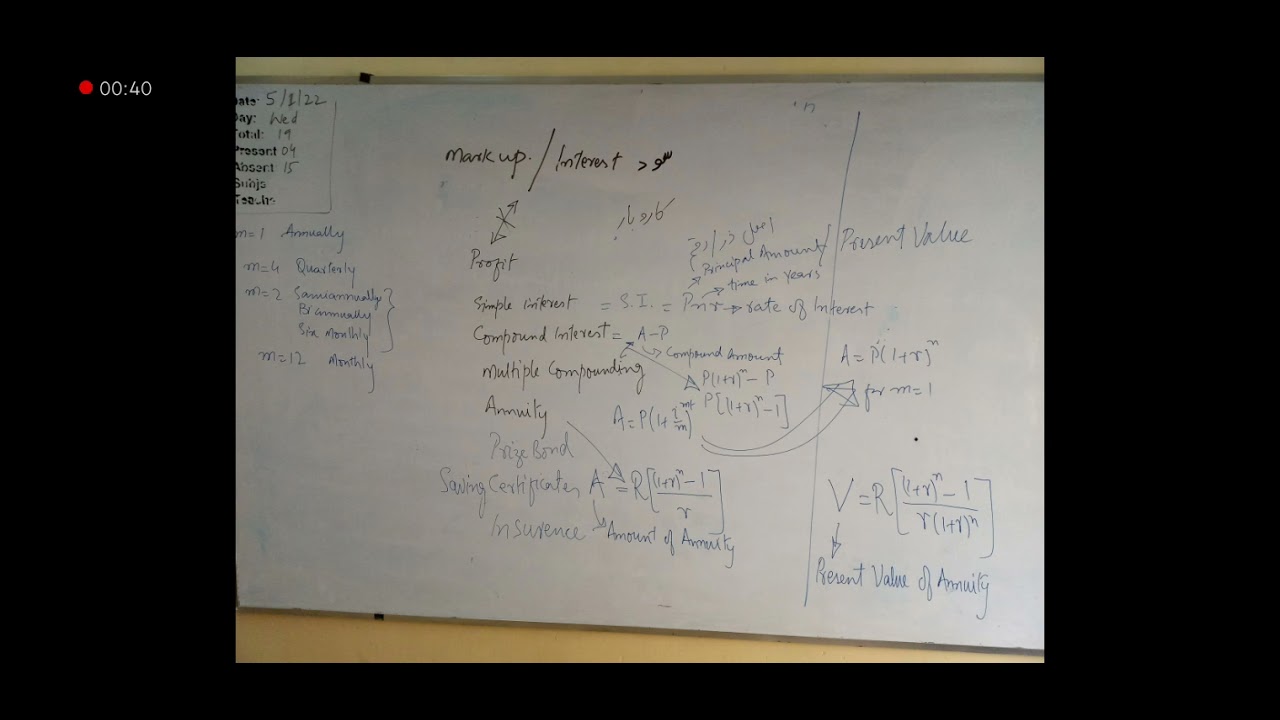 00:40
Date: 5/1/22
Day: Wed
Total: 19
Present 04
Absent 15
Subje
Teache
m=1 Annually
m=4 Quarterly
m=2 Samiannually
Biannually
Six Monthly
m=12 Monthly
Markup / Interest سود
کاروبار
Profit
اصل زر
Principal Amount / Present Value
time in years
Simple interest = S.I. = Pnr → rate of Interest
Compound Interest = A-P
Compound Amount
Multiple Compounding
P(1+r)^n - P
P[(1+r)^n - 1]
A = P(1+r)^n
for m=1
Annuity
Prize Bond
Saving Certificates A = R[((1+r)^n - 1)/r]
Insurence
Amount of Annuity
V = R[((1+r)^n - 1)/(r(1+r)^n)]
Present Value of Annuity